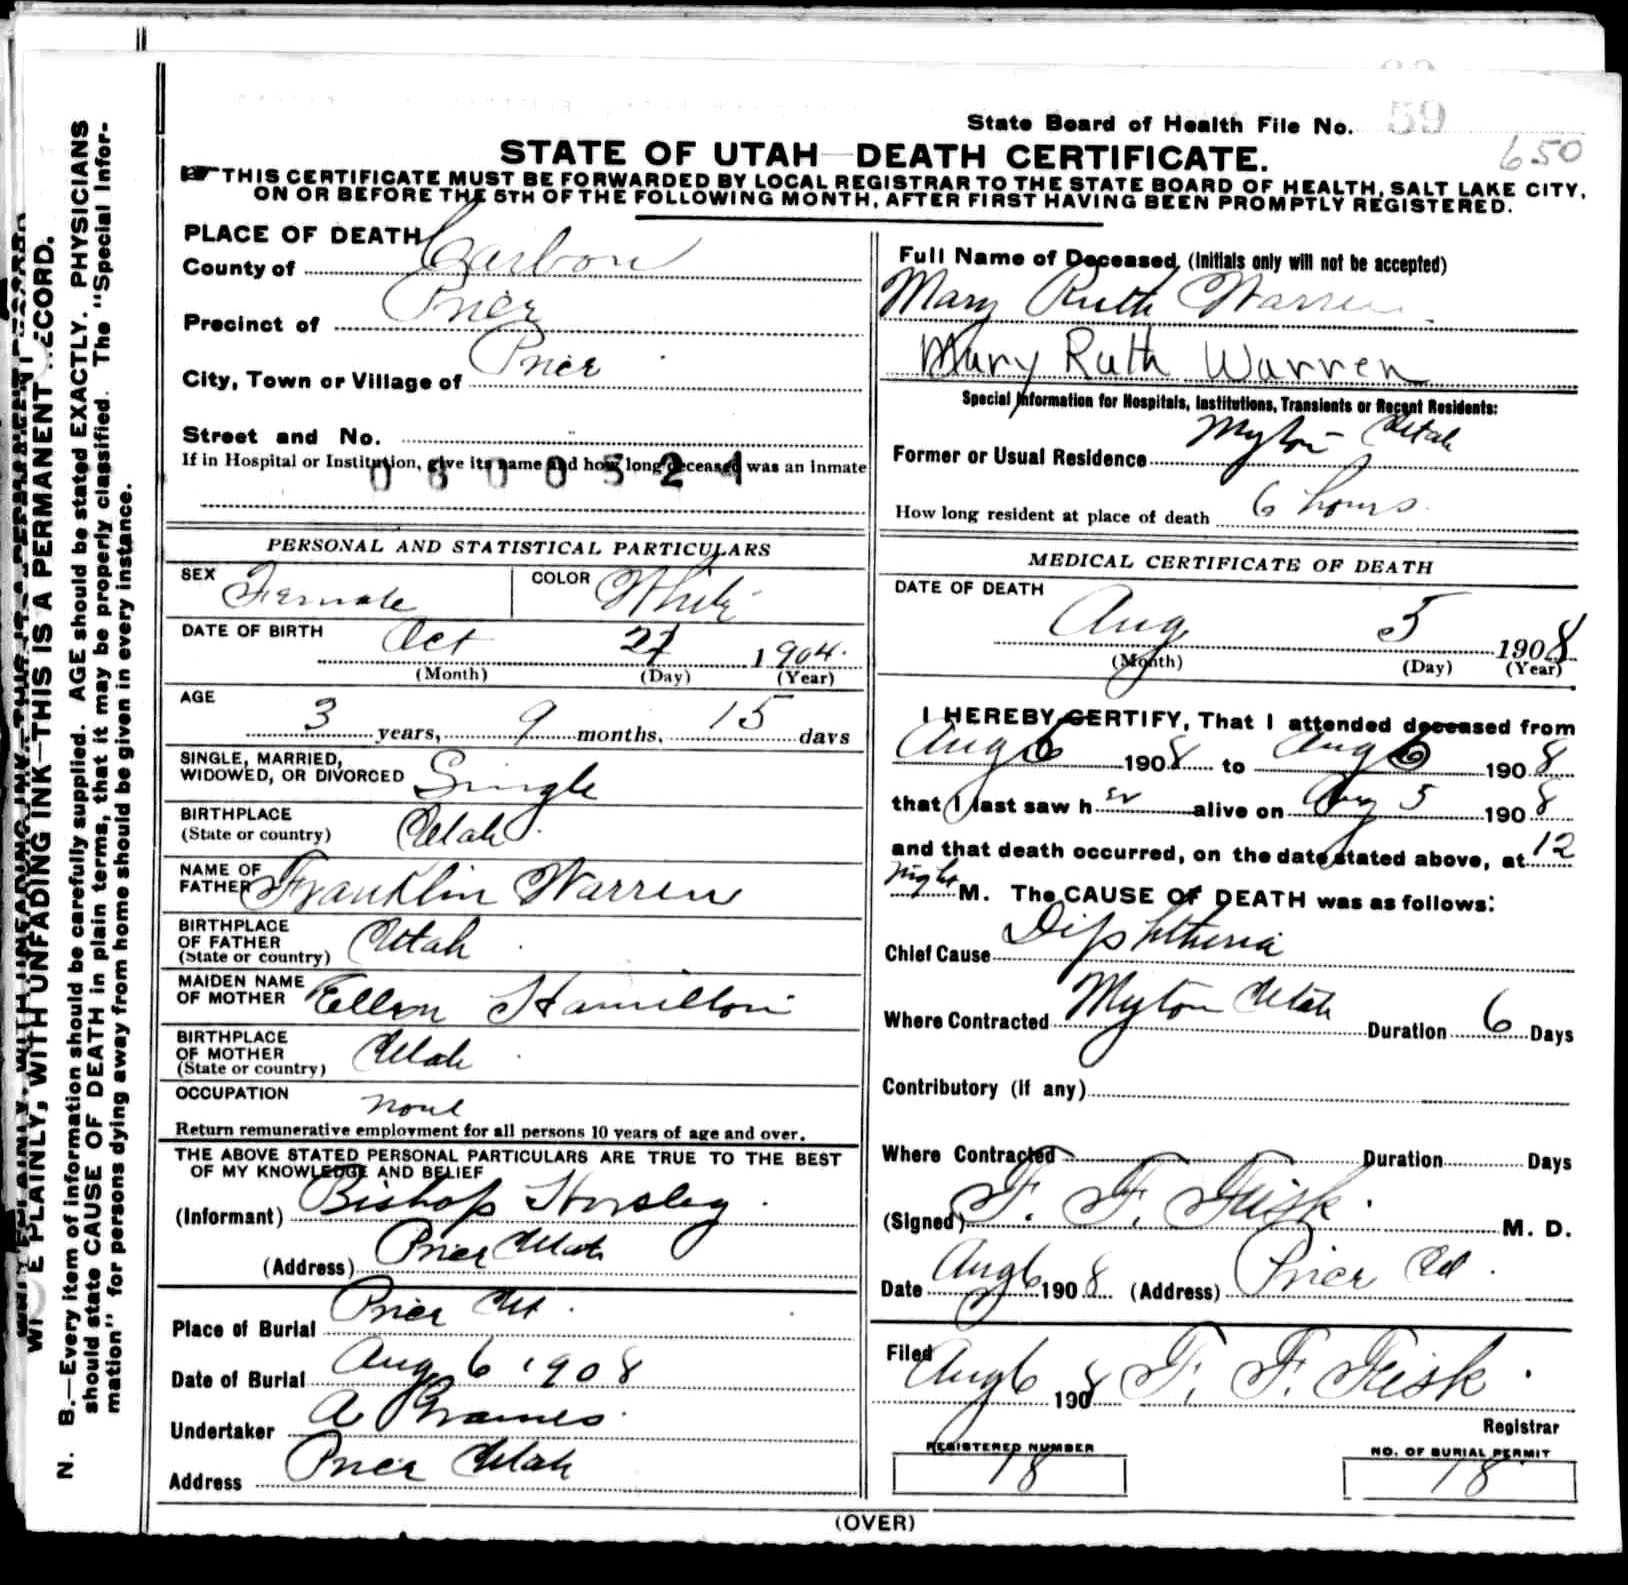 State Board of Health File No. 59
650
STATE OF UTAH—DEATH CERTIFICATE.
THIS CERTIFICATE MUST BE FORWARDED BY LOCAL REGISTRAR TO THE STATE BOARD OF HEALTH, SALT LAKE CITY,
ON OR BEFORE THE 5TH OF THE FOLLOWING MONTH, AFTER FIRST HAVING BEEN PROMPTLY REGISTERED.
PLACE OF DEATH
County of Carbon
Precinct of Price
City, Town or Village of Price
Street and No.
If in Hospital or Institution, give its name and how long deceased was an inmate
PERSONAL AND STATISTICAL PARTICULARS
SEX Female COLOR White
DATE OF BIRTH Oct 27 1904.
(Month) (Day) (Year)
AGE
3 years, 9 months, 15 days
SINGLE, MARRIED,
WIDOWED, OR DIVORCED Single
BIRTHPLACE
(State or country) Utah
NAME OF
FATHER Franklin Warren
BIRTHPLACE
OF FATHER
(State or country) Utah
MAIDEN NAME
OF MOTHER Ellen Hamilton
BIRTHPLACE
OF MOTHER
(State or country) Utah
OCCUPATION none
Return remunerative employment for all persons 10 years of age and over.
THE ABOVE STATED PERSONAL PARTICULARS ARE TRUE TO THE BEST
OF MY KNOWLEDGE AND BELIEF
(Informant) Bishop Horsley
(Address) Price Utah
Place of Burial Price Ut.
Date of Burial Aug 6 1908
Undertaker A
Address Price Utah
Full Name of Deceased, (Initials only will not be accepted)
Mary Ruth Warren
Mary Ruth Warren
Special Information for Hospitals, Institutions, Transients or Recent Residents:
Former or Usual Residence Myton Utah
How long resident at place of death 6 hours
MEDICAL CERTIFICATE OF DEATH
DATE OF DEATH
Aug 5 1908
(Month) (Day) (Year)
I HEREBY CERTIFY, That I attended deceased from
Aug 6 1908 to Aug 6 1908
that I last saw her alive on Aug 5 1908
and that death occurred, on the date stated above, at 12
night M. The CAUSE OF DEATH was as follows:
Chief Cause Diphtheria
Where Contracted Myton Utah Duration 6 Days
Contributory (if any)
Where Contracted Duration Days
(Signed) F. F. Fisk M. D.
Date Aug 6 1908 (Address) Price Ut.
Filed Aug 6 1908 F. F. Fisk
Registrar
REGISTERED NUMBER
18
NO. OF BURIAL PERMIT
18
(OVER)
WRITE PLAINLY, WITH UNFADING INK—THIS IS A PERMANENT RECORD.
N. B.—Every item of information should be carefully supplied. AGE should be stated EXACTLY. PHYSICIANS
should state CAUSE OF DEATH in plain terms, that it may be properly classified. The "Special Infor-
mation" for persons dying away from home should be given in every instance.